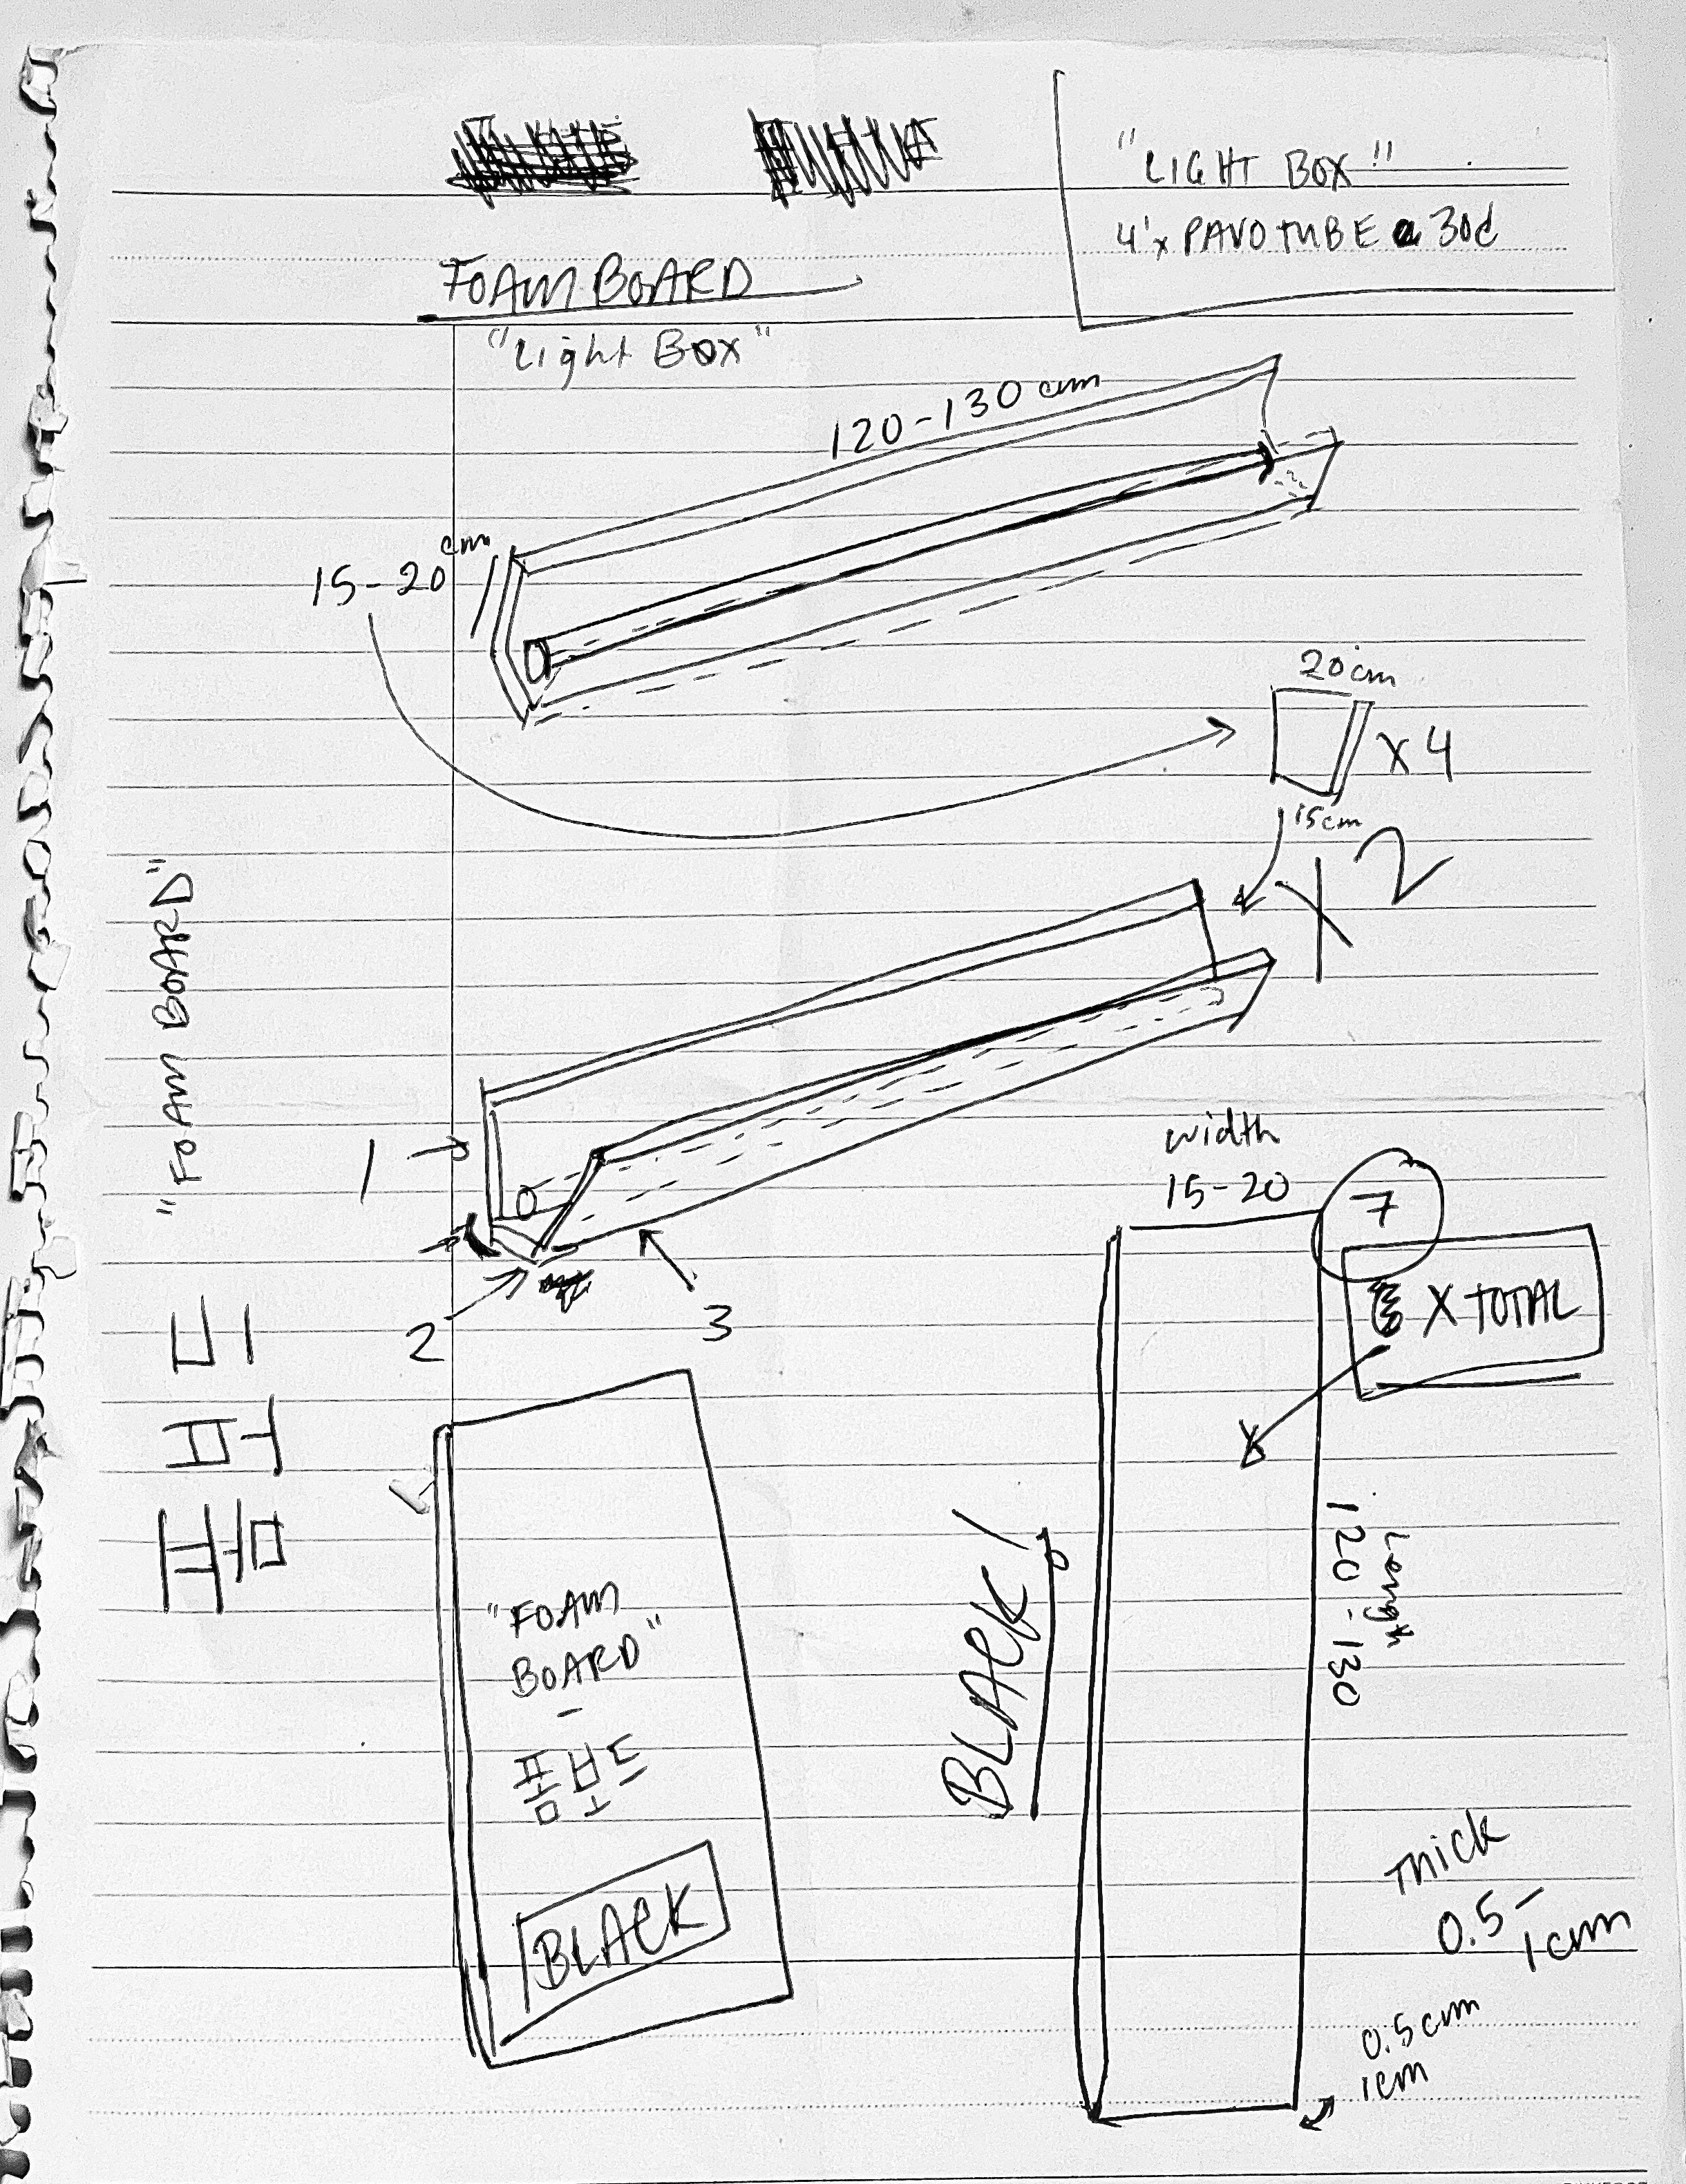 "LIGHT BOX"
4'x PAVOTUBE 30C
FOAM BOARD
"Light Box"
120-130 cm
15-20 cm
20cm
x 4
15cm
x 2
"FOAM BOARD"
폼보드
1
2
3
width
15-20
7
X TOTAL
Length
120-130
BLACK!
"FOAM
BOARD"
-
폼보드
BLACK
Thick
0.5-
1cm
0.5cm
1cm